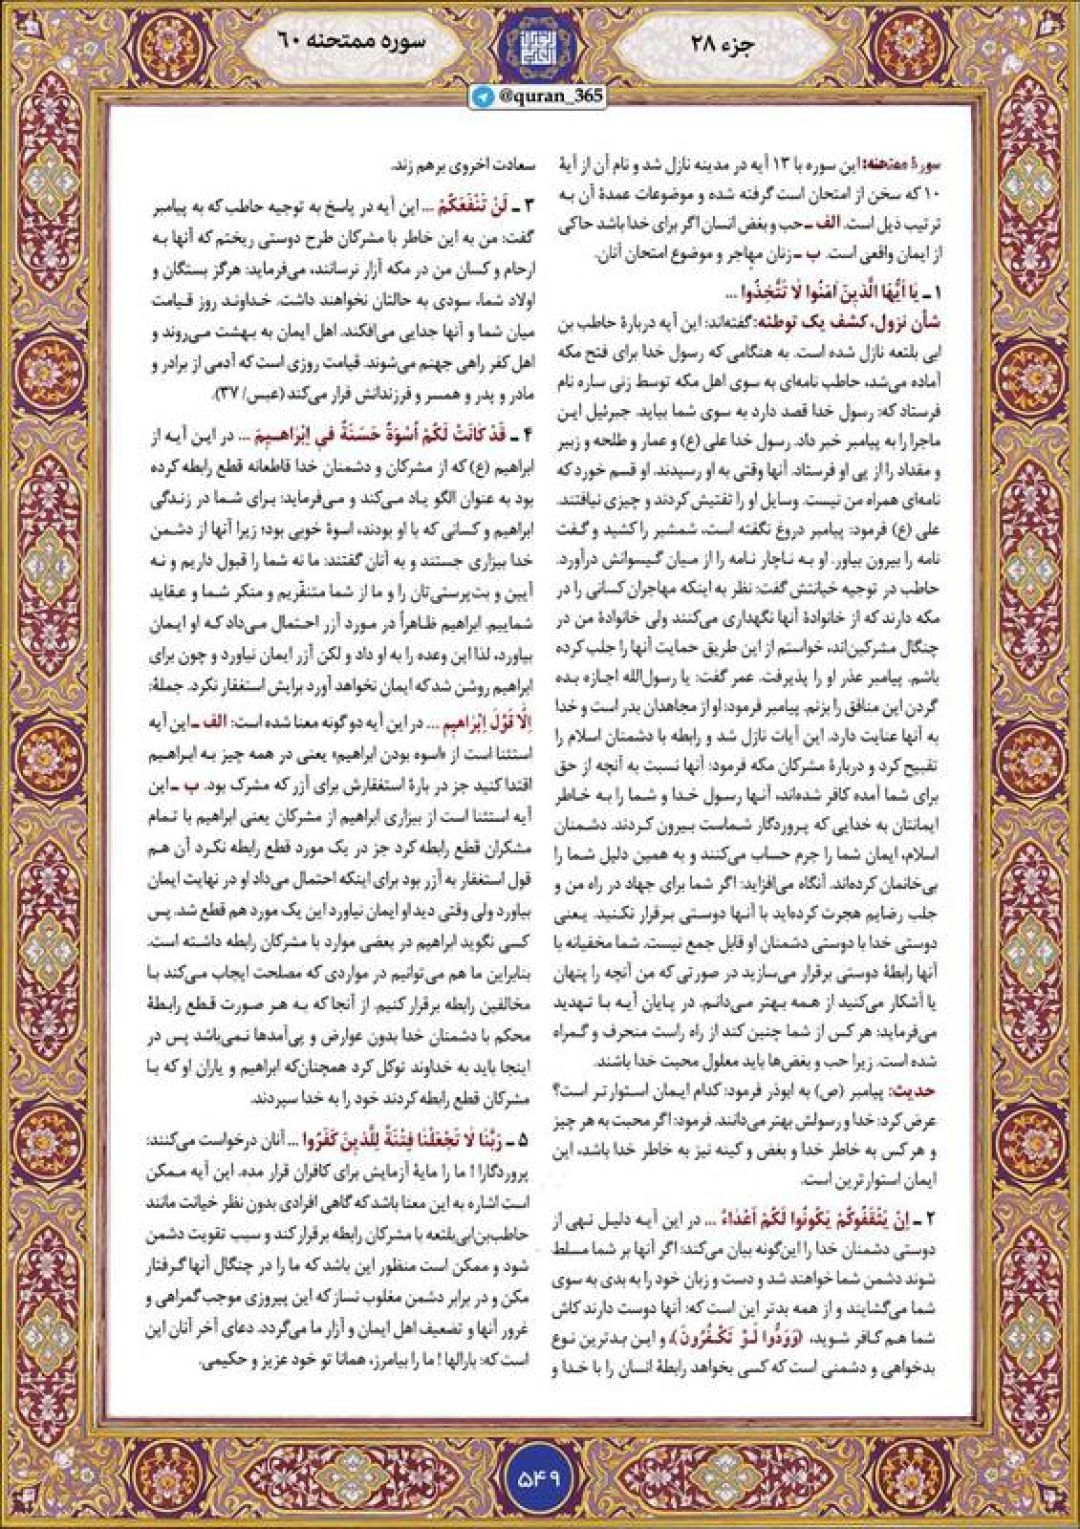 جزء ۲۸
سوره ممتحنه ۶۰
@quran_365
سورهٔ ممتحنه: این سوره با ۱۳ آیه در مدینه نازل شد و نام آن از آیهٔ
۱۰ که سخن از امتحان است گرفته شده و موضوعات عمدهٔ آن به
ترتیب ذیل است. الف ـ حب و بغض انسان اگر برای خدا باشد حاکی
از ایمان واقعی است. ب ـ زنان مهاجر و موضوع امتحان آنان.
۱ ـ یَا أَیُّهَا الَّذِینَ آمَنُوا لَا تَتَّخِذُوا ...
شأن نزول، کشف یک توطئه: گفته‌اند: این آیه دربارهٔ حاطب بن
ابی بلتعه نازل شده است. به هنگامی که رسول خدا برای فتح مکه
آماده می‌شد، حاطب نامه‌ای به سوی اهل مکه توسط زنی ساره نام
فرستاد که: رسول خدا قصد دارد به سوی شما بیاید. جبرئیل این
ماجرا را به پیامبر خبر داد. رسول خدا علی (ع) و عمار و طلحه و زبیر
و مقداد را از پی او فرستاد. آنها وقتی به او رسیدند، او قسم خورد که
نامه‌ای همراه من نیست. وسایل او را تفتیش کردند و چیزی نیافتند.
علی (ع) فرمود: پیامبر دروغ نگفته است، شمشیر را کشید و گفت
نامه را بیرون بیاور. او به ناچار نامه را از میان گیسوانش درآورد.
حاطب در توجیه خیانتش گفت: نظر به اینکه مهاجران کسانی را در
مکه دارند که از خانوادهٔ آنها نگهداری می‌کنند ولی خانوادهٔ من در
چنگال مشرکین‌اند، خواستم از این طریق حمایت آنها را جلب کرده
باشم. پیامبر عذر او را پذیرفت. عمر گفت: یا رسول‌الله اجازه بده
گردن این منافق را بزنم. پیامبر فرمود: او از مجاهدان بدر است و خدا
به آنها عنایت دارد. این آیات نازل شد و رابطه با دشمنان اسلام را
تقبیح کرد و دربارهٔ مشرکان مکه فرمود: آنها نسبت به آنچه از حق
برای شما آمده کافر شده‌اند، آنها رسول خدا و شما را به خاطر
ایمانتان به خدایی که پروردگار شماست بیرون کردند. دشمنان
اسلام، ایمان شما را جرم حساب می‌کنند و به همین دلیل شما را
بی‌خانمان کرده‌اند. آنگاه می‌افزاید: اگر شما برای جهاد در راه من و
جلب رضایم هجرت کرده‌اید با آنها دوستی برقرار نکنید. یعنی
دوستی خدا با دوستی دشمنان او قابل جمع نیست. شما مخفیانه با
آنها رابطهٔ دوستی برقرار می‌سازید در صورتی که من آنچه را پنهان
یا آشکار می‌کنید از همه بهتر می‌دانم. در پایان آیه با تهدید
می‌فرماید: هر کس از شما چنین کند از راه راست منحرف و گمراه
شده است. زیرا حب و بغض‌ها باید معلول محبت خدا باشند.
حدیث: پیامبر (ص) به ابوذر فرمود: کدام ایمان استوارتر است؟
عرض کرد: خدا و رسولش بهتر می‌دانند. فرمود: اگر محبت به هر چیز
و هر کس به خاطر خدا و بغض و کینه نیز به خاطر خدا باشد، این
ایمان استوارترین است.
۲ ـ إِنْ یَثْقَفُوکُمْ یَکُونُوا لَکُمْ أَعْدَاءً ... در این آیه دلیل نهی از
دوستی دشمنان خدا را این‌گونه بیان می‌کند: اگر آنها بر شما مسلط
شوند دشمن شما خواهند شد و دست و زبان خود را به بدی به سوی
شما می‌گشایند و از همه بدتر این است که: آنها دوست دارند کاش
شما هم کافر شوید، (وَوَدُّوا لَوْ تَکْفُرُونَ)، و این بدترین نوع
بدخواهی و دشمنی است که کسی بخواهد رابطهٔ انسان را با خدا و
سعادت اخروی برهم زند.
۳ ـ لَنْ تَنْفَعَکُمْ ... این آیه در پاسخ به توجیه حاطب که به پیامبر
گفت: من به این خاطر با مشرکان طرح دوستی ریختم که آنها به
ارحام و کسان من در مکه آزار نرسانند، می‌فرماید: هرگز بستگان و
اولاد شما، سودی به حالتان نخواهند داشت. خداوند روز قیامت
میان شما و آنها جدایی می‌افکند. اهل ایمان به بهشت می‌روند و
اهل کفر راهی جهنم می‌شوند. قیامت روزی است که آدمی از برادر و
مادر و پدر و همسر و فرزندانش فرار می‌کند (عبس/ ۳۷).
۴ ـ قَدْ کَانَتْ لَکُمْ أُسْوَةٌ حَسَنَةٌ فِی إِبْرَاهِیمَ ... در این آیه از
ابراهیم (ع) که از مشرکان و دشمنان خدا قاطعانه قطع رابطه کرده
بود به عنوان الگو یاد می‌کند و می‌فرماید: برای شما در زندگی
ابراهیم و کسانی که با او بودند، اسوهٔ خوبی بود؛ زیرا آنها از دشمن
خدا بیزاری جستند و به آنان گفتند: ما نه شما را قبول داریم و نه
آیین و بت‌پرستی‌تان را و ما از شما متنفّریم و منکر شما و عقاید
شماییم. ابراهیم ظاهراً در مورد آزر احتمال می‌داد که او ایمان
بیاورد، لذا این وعده را به او داد و لکن آزر ایمان نیاورد و چون برای
ابراهیم روشن شد که ایمان نخواهد آورد برایش استغفار نکرد. جملهٔ:
إِلَّا قَوْلَ إِبْرَاهِیمَ ... در این آیه دو گونه معنا شده است: الف ـ این آیه
استثنا است از «اسوه بودن ابراهیم» یعنی در همه چیز به ابراهیم
اقتدا کنید جز در بارهٔ استغفارش برای آزر که مشرک بود. ب ـ این
آیه استثنا است از بیزاری ابراهیم از مشرکان یعنی ابراهیم با تمام
مشکران قطع رابطه کرد جز در یک مورد قطع رابطه نکرد آن هم
قول استغفار به آزر بود برای اینکه احتمال می‌داد او در نهایت ایمان
بیاورد ولی وقتی دید او ایمان نیاورد این یک مورد هم قطع شد. پس
کسی نگوید ابراهیم در بعضی موارد با مشرکان رابطه داشته است.
بنابراین ما هم می‌توانیم در مواردی که مصلحت ایجاب می‌کند با
مخالفین رابطه برقرار کنیم. از آنجا که به هر صورت قطع رابطهٔ
محکم با دشمنان خدا بدون عوارض و پی‌آمدها نمی‌باشد پس در
اینجا باید به خداوند توکل کرد همچنان‌که ابراهیم و یاران او که با
مشرکان قطع رابطه کردند خود را به خدا سپردند.
۵ ـ رَبَّنَا لَا تَجْعَلْنَا فِتْنَةً لِلَّذِینَ کَفَرُوا ... آنان درخواست می‌کنند:
پروردگارا! ما را مایهٔ آزمایش برای کافران قرار مده. این آیه ممکن
است اشاره به این معنا باشد که گاهی افرادی بدون نظر خیانت مانند
حاطب‌بن‌ابی‌بلتعه با مشرکان رابطه برقرار کند و سبب تقویت دشمن
شود و ممکن است منظور این باشد که ما را در چنگال آنها گرفتار
مکن و در برابر دشمن مغلوب نساز که این پیروزی موجب گمراهی و
غرور آنها و تضعیف اهل ایمان و آزار ما می‌گردد. دعای آخر آنان این
است که: بارالها! ما را بیامرز، همانا تو خود عزیز و حکیمی.
۵۴۹